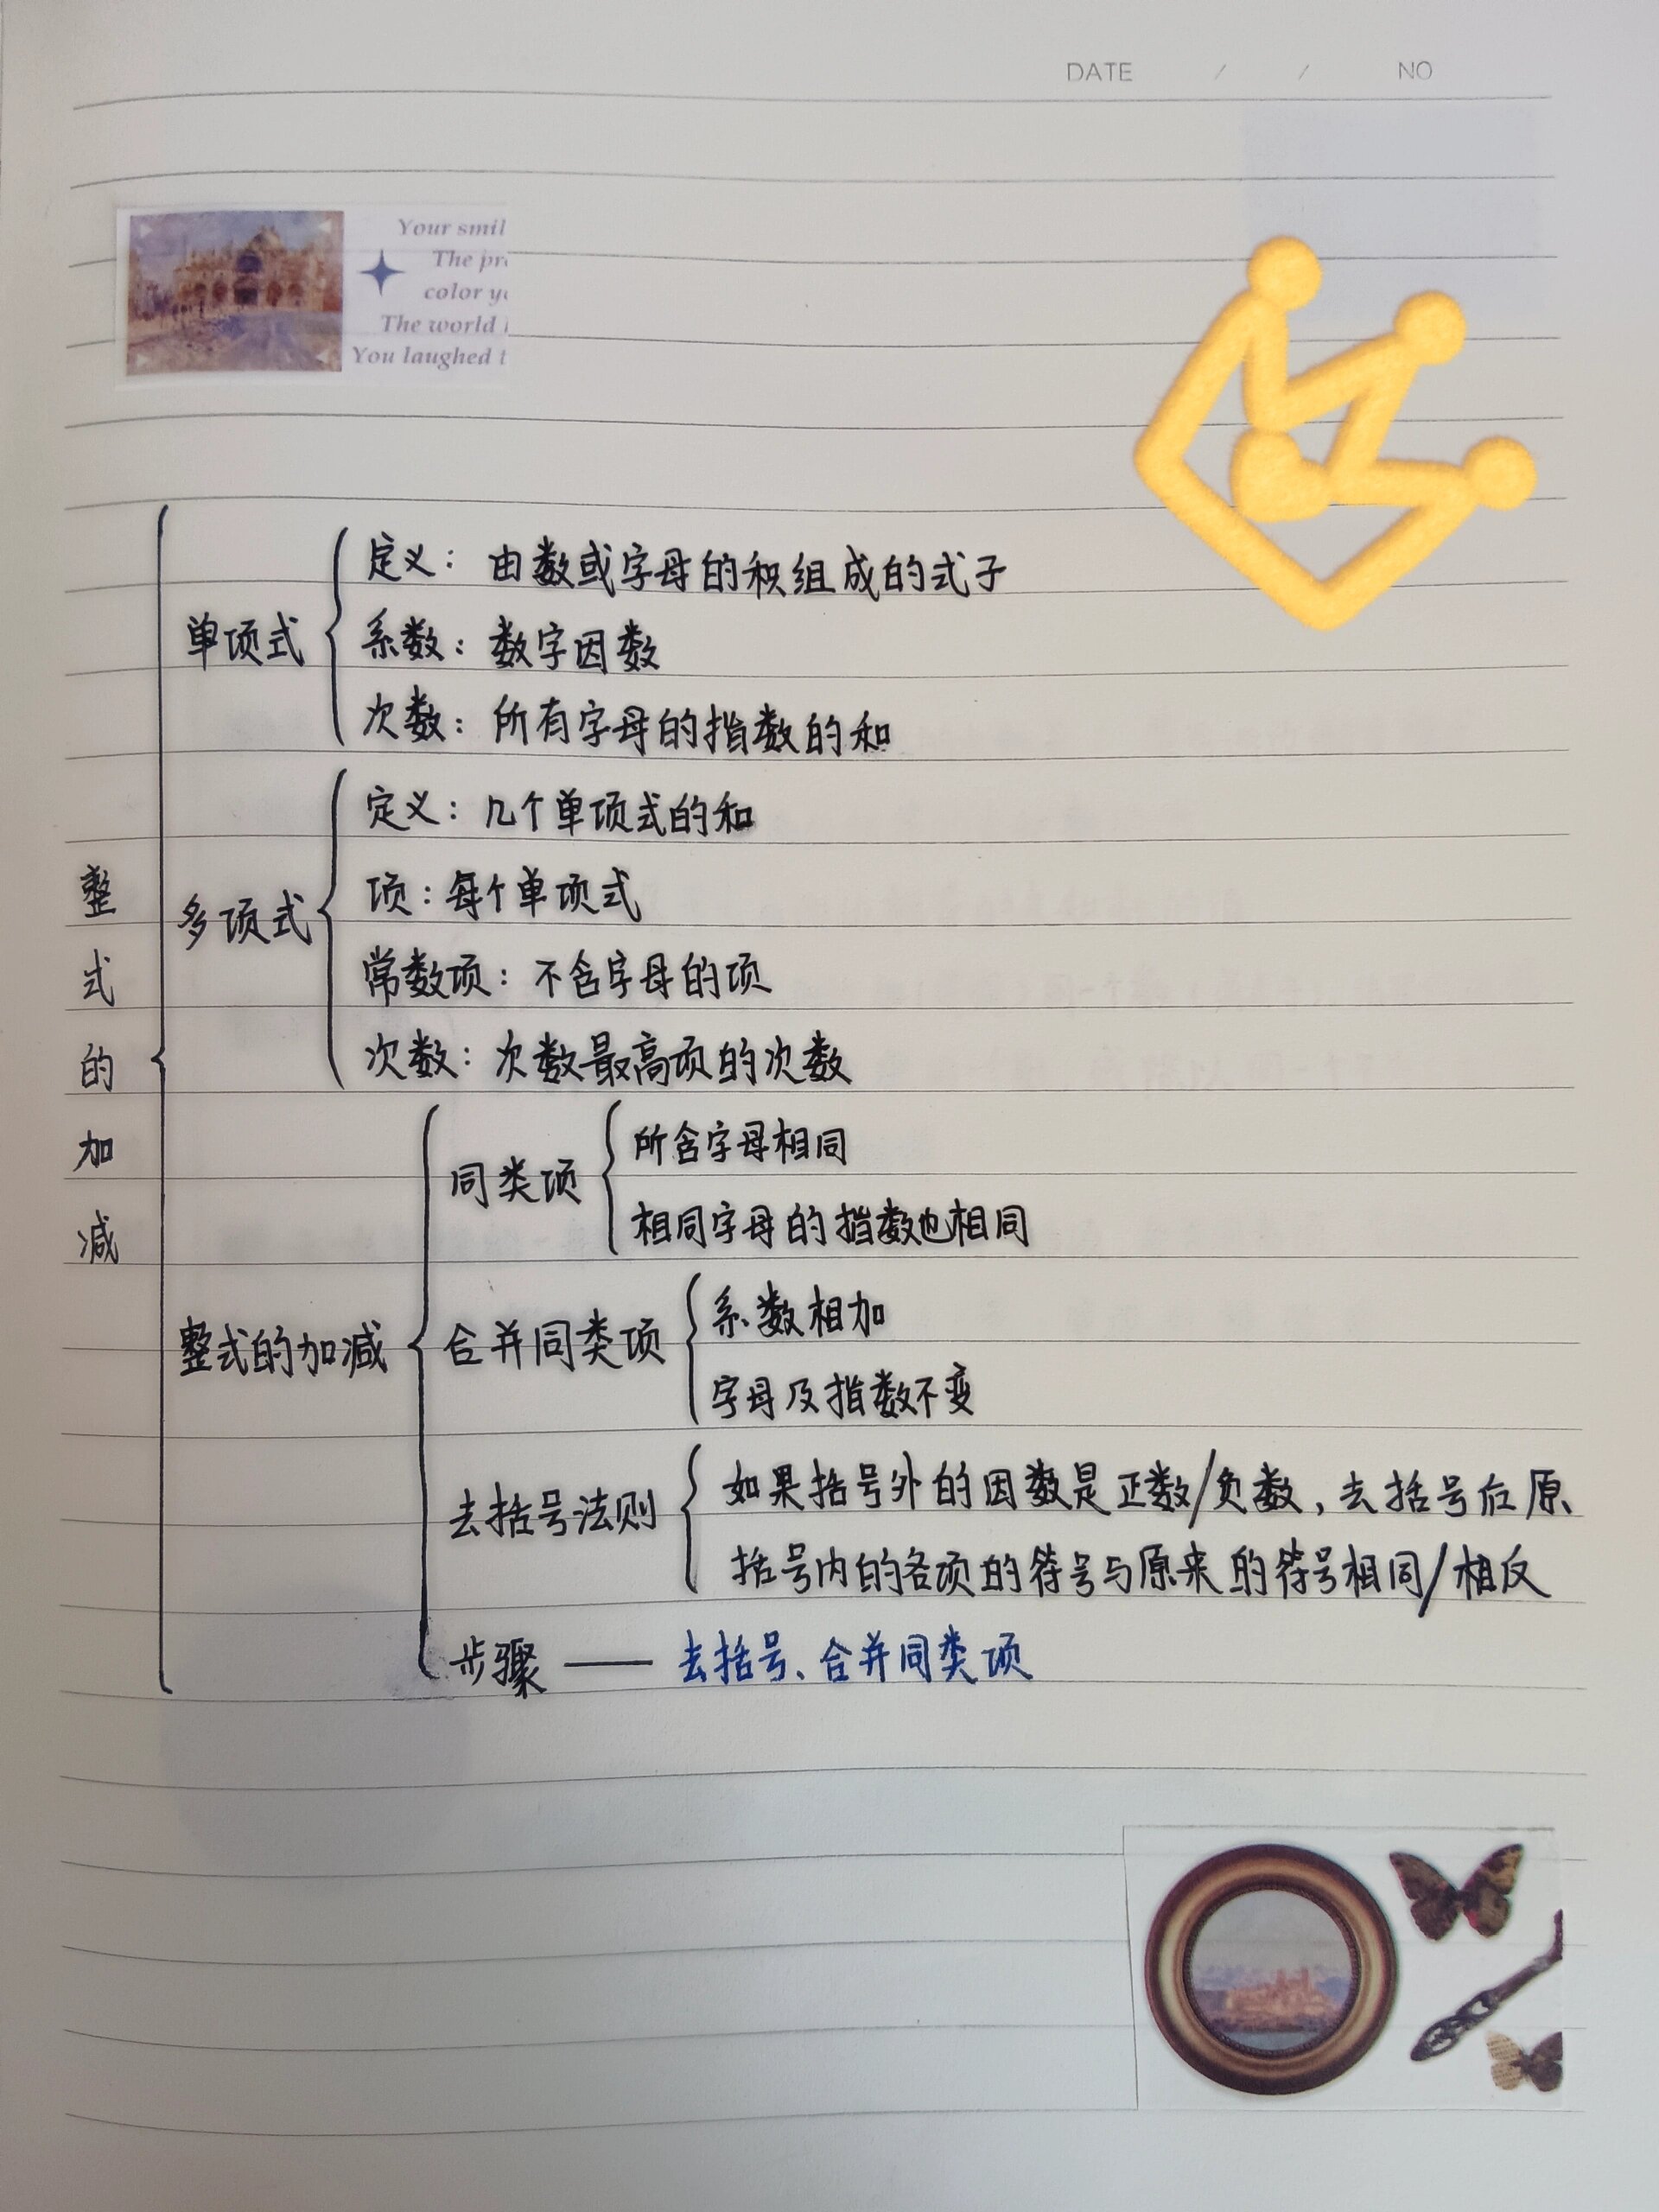 DATE / / NO
Your smil
The pr
color y
The world
You laughed t
整式的加减
单项式
定义：由数或字母的积组成的式子
系数：数字因数
次数：所有字母的指数的和
多项式
定义：几个单项式的和
项：每个单项式
常数项：不含字母的项
次数：次数最高项的次数
整式的加减
同类项
所含字母相同
相同字母的指数也相同
合并同类项
系数相加
字母及指数不变
去括号法则
如果括号外的因数是正数/负数，去括号后原
括号内的各项的符号与原来的符号相同/相反
步骤——去括号、合并同类项